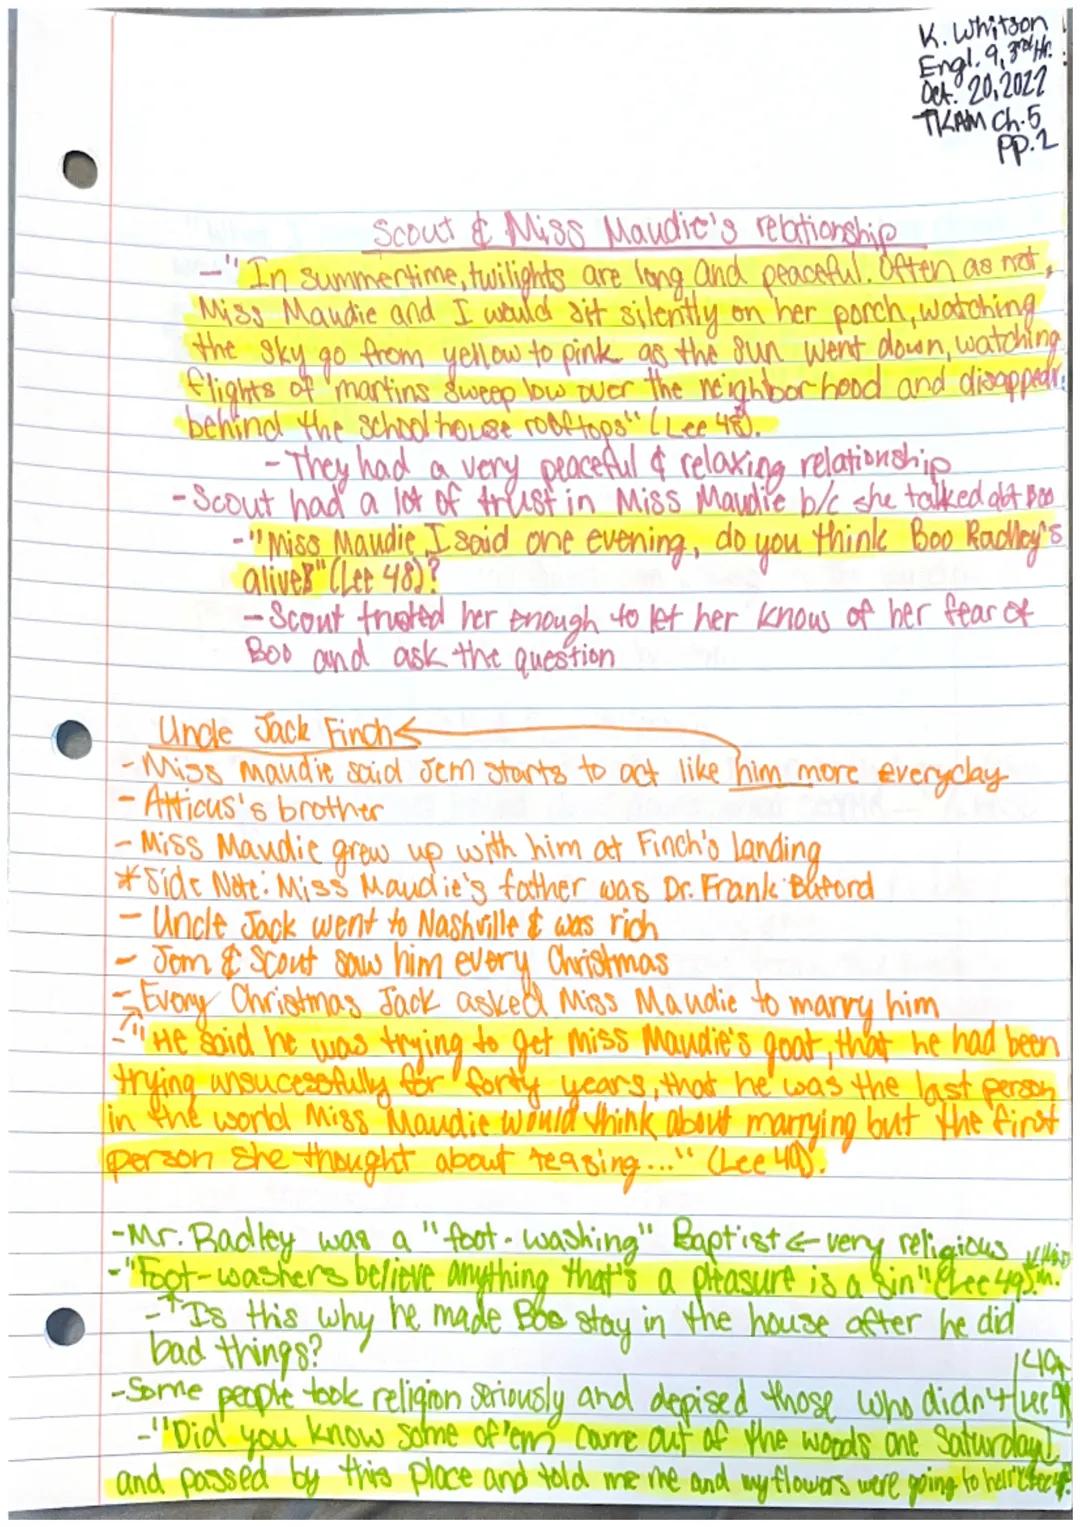 K. Whitson
Engl. 9, 3rd Hr.
Oct. 20, 2022
TKAM Ch. 5
pp. 2
Scout & Miss Maudie's relationship
- "In summertime, twilights are long and peaceful. Often as not,
Miss Maudie and I would sit silently on her porch, watching
the sky go from yellow to pink as the sun went down, watching
flights of martins sweep low over the neighborhood and disappear
behind the schoolhouse rooftops" (Lee 48).
- They had a very peaceful & relaxing relationship
- Scout had a lot of trust in Miss Maudie b/c she talked abt Boo
- "Miss Maudie I said one evening, do you think Boo Radley's
alive?" (Lee 48)?
- Scout trusted her enough to let her know of her fear of
Boo and ask the question
Uncle Jack Finch
- Miss Maudie said Jem starts to act like him more everyday
- Atticus's brother
- Miss Maudie grew up with him at Finch's Landing
* Side Note: Miss Maudie's father was Dr. Frank Buford
- Uncle Jack went to Nashville & was rich
- Jem & Scout saw him every Christmas
- Every Christmas Jack asked Miss Maudie to marry him
- "He said he was trying to get Miss Maudie's goat, that he had been
trying unsucessfully for forty years, that he was the last person
in the world Miss Maudie would think about marrying but the first
person she thought about teasing..." (Lee 49).
- Mr. Radley was a "foot-washing" Baptist ← very religious
- "Foot-washers believe anything that's a pleasure is a sin" (Lee 49).
- Is this why he made Boo stay in the house after he did
bad things?
- Some people took religion seriously and depised those who didn't
- "Did you know some of 'em came out of the woods one Saturday
and passed by this place and told me me and my flowers were going to hell"